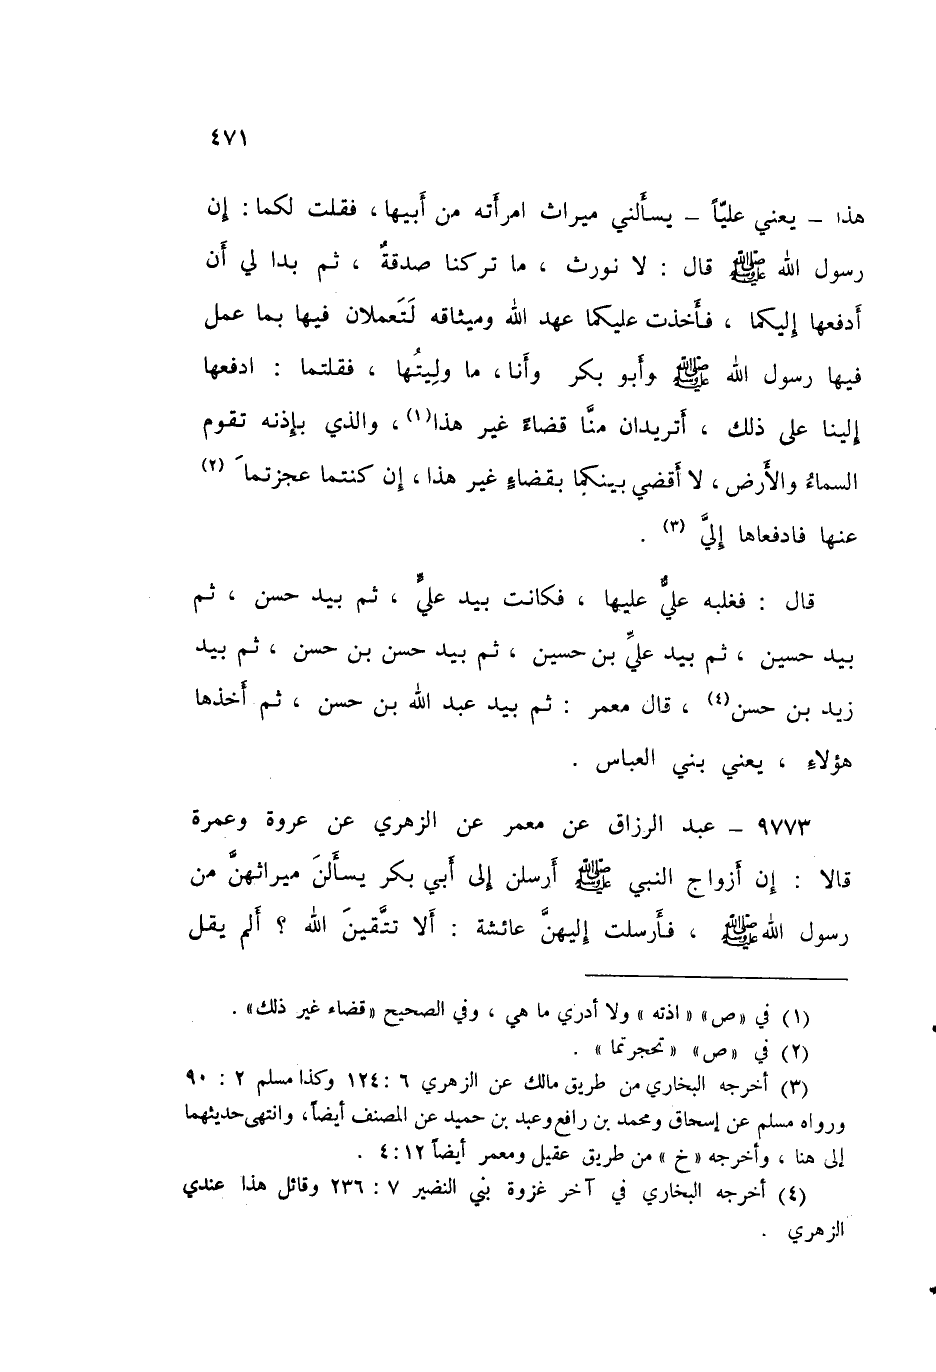 ٤٧١
هذا – يعني عليّاً – يسأَلني ميراث امرأَته من أَبيها ، فقلت لكما : إِن
رسول الله ﷺ قال : لا نورث ، ما تركنا صدقةٌ ، ثم بدا لي أَن
أدفعها إِليكما ، فأَخذت عليكما عهد الله وميثاقه لَتَعملان فيها بما عمل
فيها رسول الله ﷺ وأَبو بكر وأَنا ، ما ولِيتُها ، فقلتما : ادفعها
إلينا على ذلك ، أَتريدان منَّا قضاءً غير هذا(١) ، والذي بإِذنه تقوم
السماءُ والأَرض ، لا أَقضي بينكما بقضاءٍ غير هذا ، إِن كنتما عجزتما (٢)
عنها فادفعاها إِليَّ (٣) .
قال : فغلبه عليٌّ عليها ، فكانت بيد عليٍّ ، ثم بيد حسن ، ثم
بيد حسين ، ثم بيد عليِّ بن حسين ، ثم بيد حسن بن حسن ، ثم بيد
زيد بن حسن(٤) ، قال معمر : ثم بيد عبد الله بن حسن ، ثم أَخذها
هؤلاءِ ، يعني بني العباس .
٩٧٧٣ – عبد الرزاق عن معمر عن الزهري عن عروة وعمرة
قالا : إِن أَزواج النبي ﷺ أَرسلن إِلى أَبي بكر يسأَلنَ ميراثهنَّ من
رسول الله ﷺ ، فأَرسلت إِليهنَّ عائشة : أَلا تتَّقينَ الله ؟ أَلم يقل
(١) في «ص» « اذته » ولا أدري ما هي ، وفي الصحيح «قضاء غير ذلك» .
(٢) في «ص» «تحجرتما » .
(٣) أخرجه البخاري من طريق مالك عن الزهري ٦ : ١٢٤ وكذا مسلم ٢ : ٩٠
ورواه مسلم عن إسحاق ومحمد بن رافع وعبد بن حميد عن المصنف أيضاً ، وانتهى حديثهما
إلى هنا ، وأخرجه «خ» من طريق عقيل ومعمر أيضاً ١٢ : ٤ .
(٤) أخرجه البخاري في آخر غزوة بني النضير ٧ : ٢٣٦ وقائل هذا عندي
الزهري .